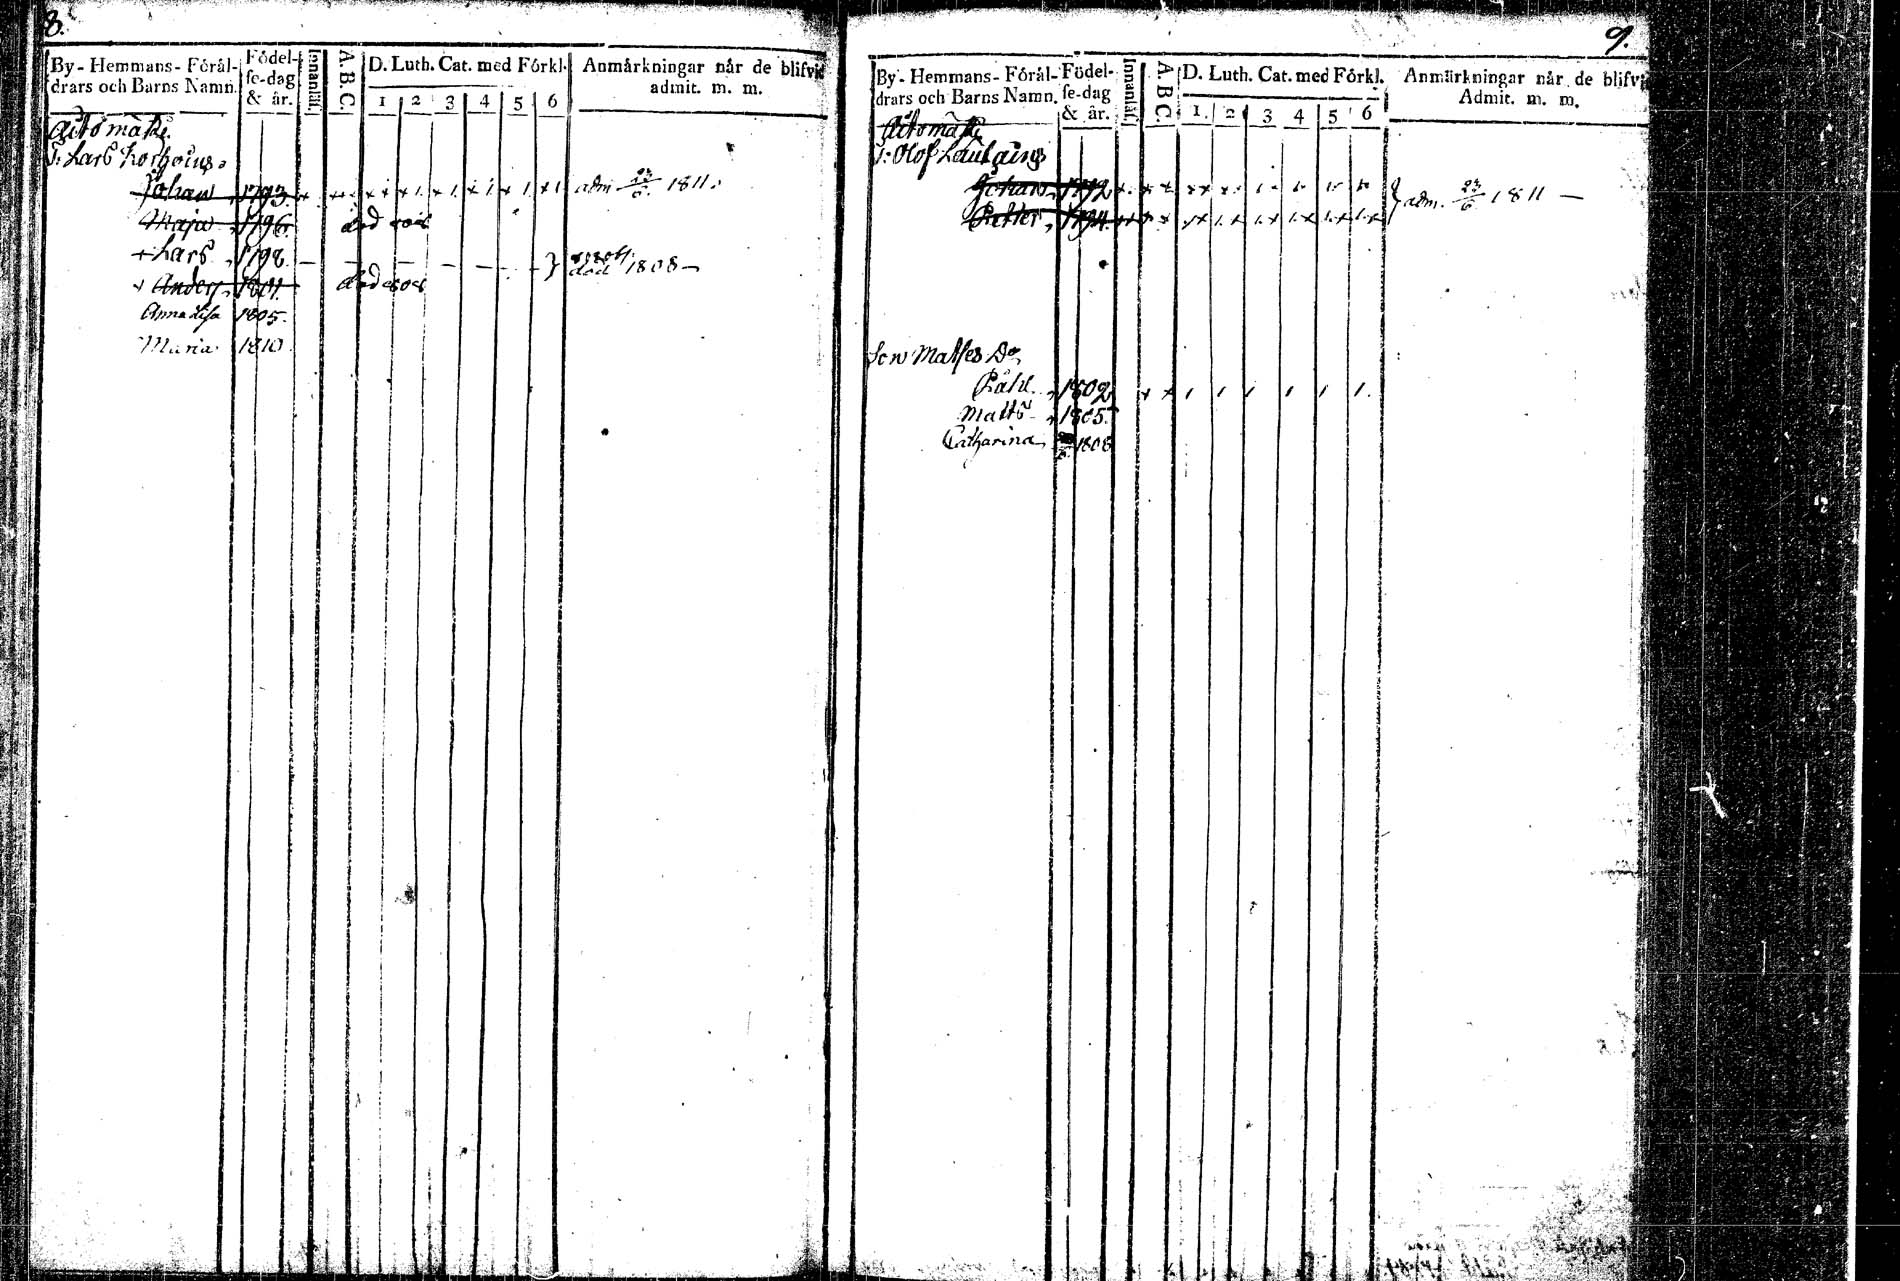 8.
By- Hemmans- Föräl-
drars och Barns Namn.
Födel-
se-dag
& år.
Innanläs.
A. B. C.
D. Luth. Cat. med Förkl.
1 2 3 4 5 6
Anmärkningar når de blifvit
admit. m. m.
Automäki
Johan 1793. adm 23/6. 1811.
Maja 1796. död 1808
+ Lars 1798. död 1808
+ Anders 1801. död 1808
Anna Lisa 1805.
Maria 1810
9.
By- Hemmans- Föräl-
drars och Barns Namn.
Födel-
se-dag
& år.
Innanläs.
A B C
D. Luth. Cat. med Förkl.
1. 2 3 4 5 6
Anmärkningar når de blifvit
Admit. m. m.
Automäki
Johan 1792
Petter 1794. adm. 23/6 1811
Son Matses Dº
Påhl 1802
Matts 1805.
Catharina 1808